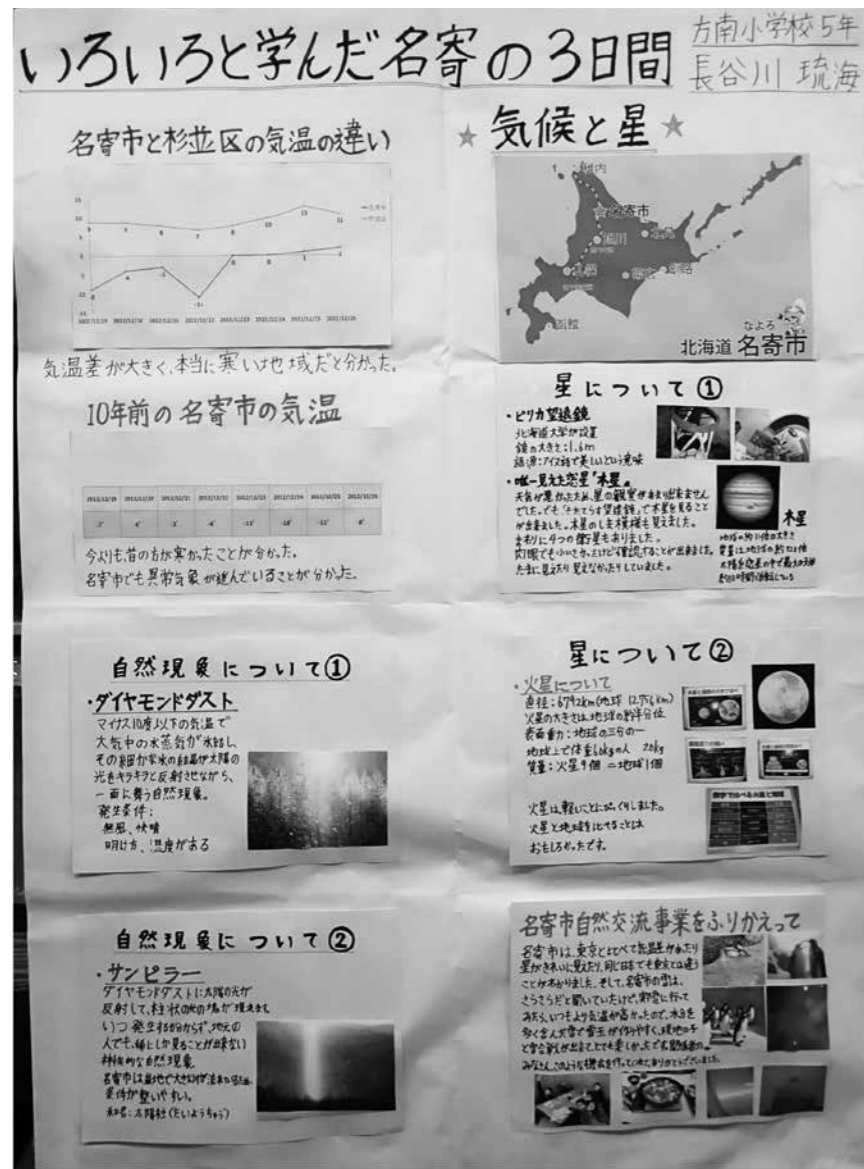 いろいろと学んだ名寄の3日間
方南小学校5年
長谷川 琉海
名寄市と杉並区の気温の違い
気温差が大きく、本当に寒い地域だと分かった。
10年前の名寄市の気温
2012/12/19 2012/12/20 2012/12/21 2012/12/22 2012/12/23 2012/12/24 2012/12/25 2012/12/26
今よりも昔の方が寒かったことが分かった。
名寄市でも異常気象が進んでいることが分かった。
自然現象について①
・ダイヤモンドダスト
マイナス10度以下の気温で
大気中の水蒸気が氷結し、
その細かな氷の結晶が太陽の
光をキラキラと反射させながら、
一面に舞う自然現象。
発生条件:
無風、快晴
明け方、湿度がある
自然現象について②
・サンピラー
ダイヤモンドダストに太陽の光が
反射して、柱状の光の
いつ発生するか分からず、地元の
人でも、稀にしか見ることが出来ない
神秘的な自然現象
名寄市は盆地で
条件が整いやすい。
和名:太陽柱(たいようちゅう)
★気候と星★
稚内
名寄市
旭川
札幌
帯広
釧路
函館
なよろ
北海道 名寄市
星について①
・ピリカ望遠鏡
北海道大学が設置
鏡の大きさ:1.6m
語源:アイヌ語で美しいという意味
・唯一見えた惑星『木星』
天気が悪かったため、星の観察があまり出来ません
でした。でも「きたすばる望遠鏡」で木星を見ること
が出来ました。木星のしま模様も見えました。
まわりに4つの衛星もありました。
肉眼でも小さかったけど確認することが出来ました。
たまに見えたり見えなかったりしていました。
木星
地球の約11倍の大きさ
星について②
・火星について
直径:6792km(地球 12,756km)
火星の大きさは、地球の約半分位
表面重力:地球の三分の一
地球上で体重60kgの人 20kg
質量:火星9個=地球1個
火星は軽いことにびっくりしました。
火星と地球を比べることは
おもしろかったです。
名寄市自然交流事業をふりかえって
名寄市は、東京とくらべて気温差があったり
星がきれいに見えたり、同じ日本でも東京とは違う
ことがわかりました。そして、名寄市の雪は、
さらさらだと聞いていたけど、実際に行って
みたら、いつもより気温が高かったので、水分を
多く含んだ雪で雪玉が作りやすく、現地の子
と雪合戦が出来て、とても楽しかったです。関係者の
みなさん、このような機会を作ってくれてありがとうございました。